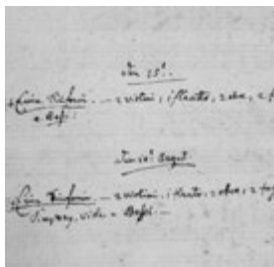 Den 25t:
Eine Sinfonie. — 2 violini, 1 flauto, 2 oboe, 2 f
e Bassi.
Den 10t: August
Eine Sinfonie. — 2 violini, 1 flauto, 2 oboe, 2 fag
viole e Bassi. —